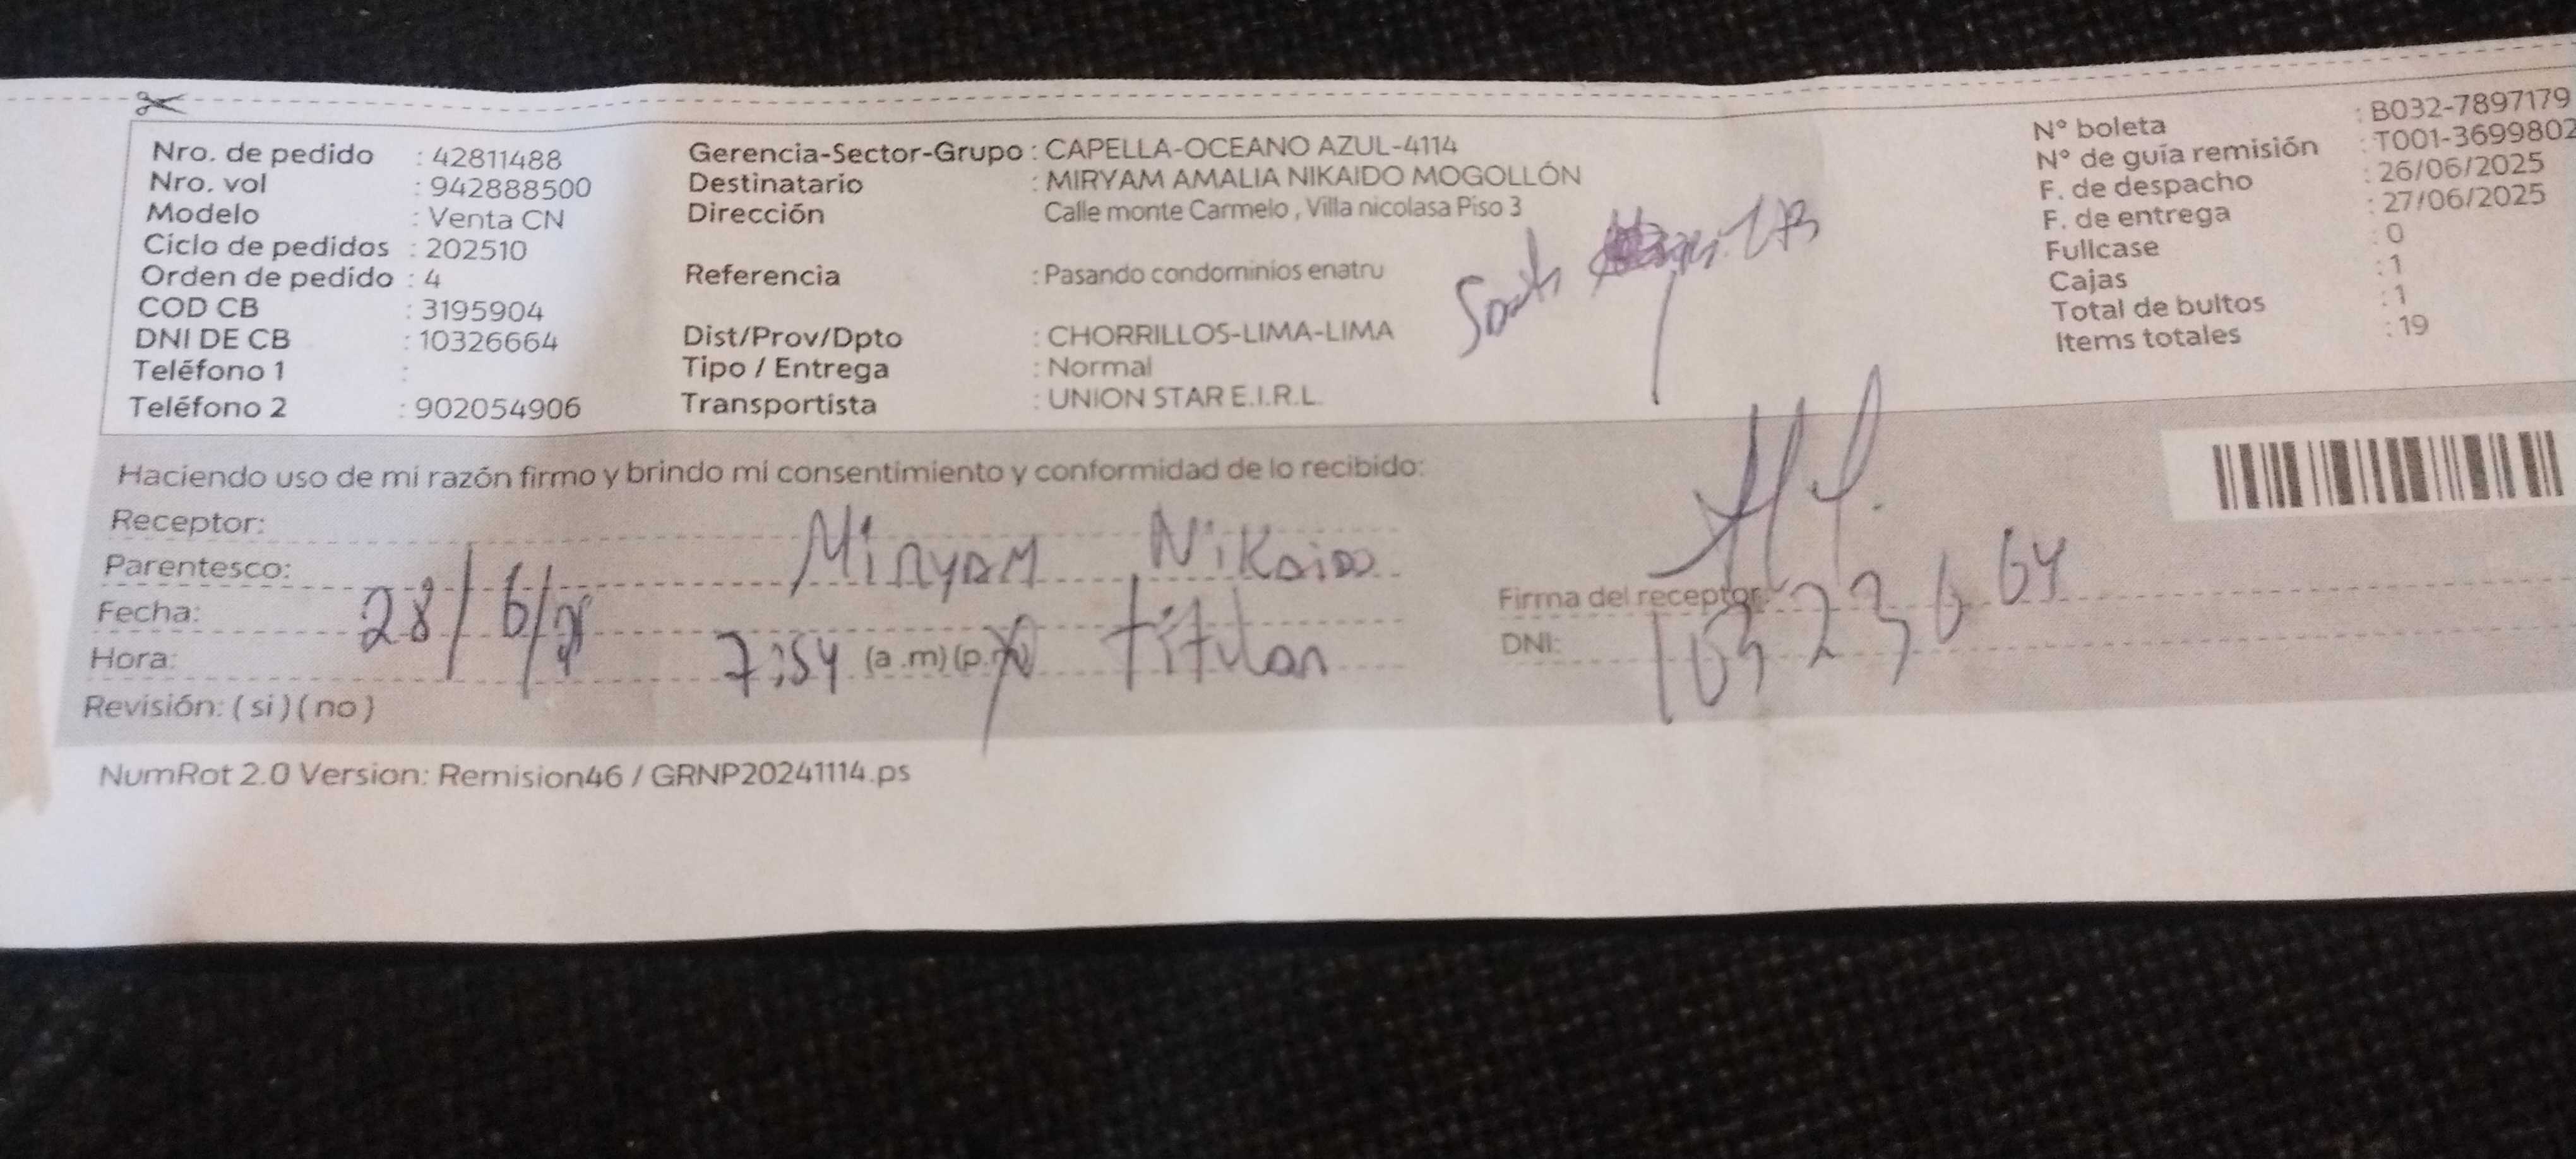 Nro. de pedido : 42811488
Nro. vol : 942888500
Modelo : Venta CN
Ciclo de pedidos : 202510
Orden de pedido : 4
COD CB : 3195904
DNI DE CB : 10326664
Teléfono 1 :
Teléfono 2 : 902054906
Gerencia-Sector-Grupo : CAPELLA-OCEANO AZUL-4114
Destinatario : MIRYAM AMALIA NIKAIDO MOGOLLÓN
Dirección Calle monte Carmelo , Villa nicolasa Piso 3
Referencia : Pasando condominios enatru
Dist/Prov/Dpto : CHORRILLOS-LIMA-LIMA
Tipo / Entrega : Normal
Transportista : UNION STAR E.I.R.L.
N° boleta : B032-7897179
N° de guía remisión : T001-3699802
F. de despacho : 26/06/2025
F. de entrega : 27/06/2025
Fullcase : 0
Cajas : 1
Total de bultos : 1
Items totales : 19
Haciendo uso de mi razón firmo y brindo mi consentimiento y conformidad de lo recibido:
Receptor: Miryam Nikaido
Parentesco: titular
Fecha: 28/6/25
Hora: 7:54 (a .m) (p.m)
Revisión: ( si ) ( no )
Firma del receptor:
DNI:
NumRot 2.0 Version: Remision46 / GRNP20241114.ps